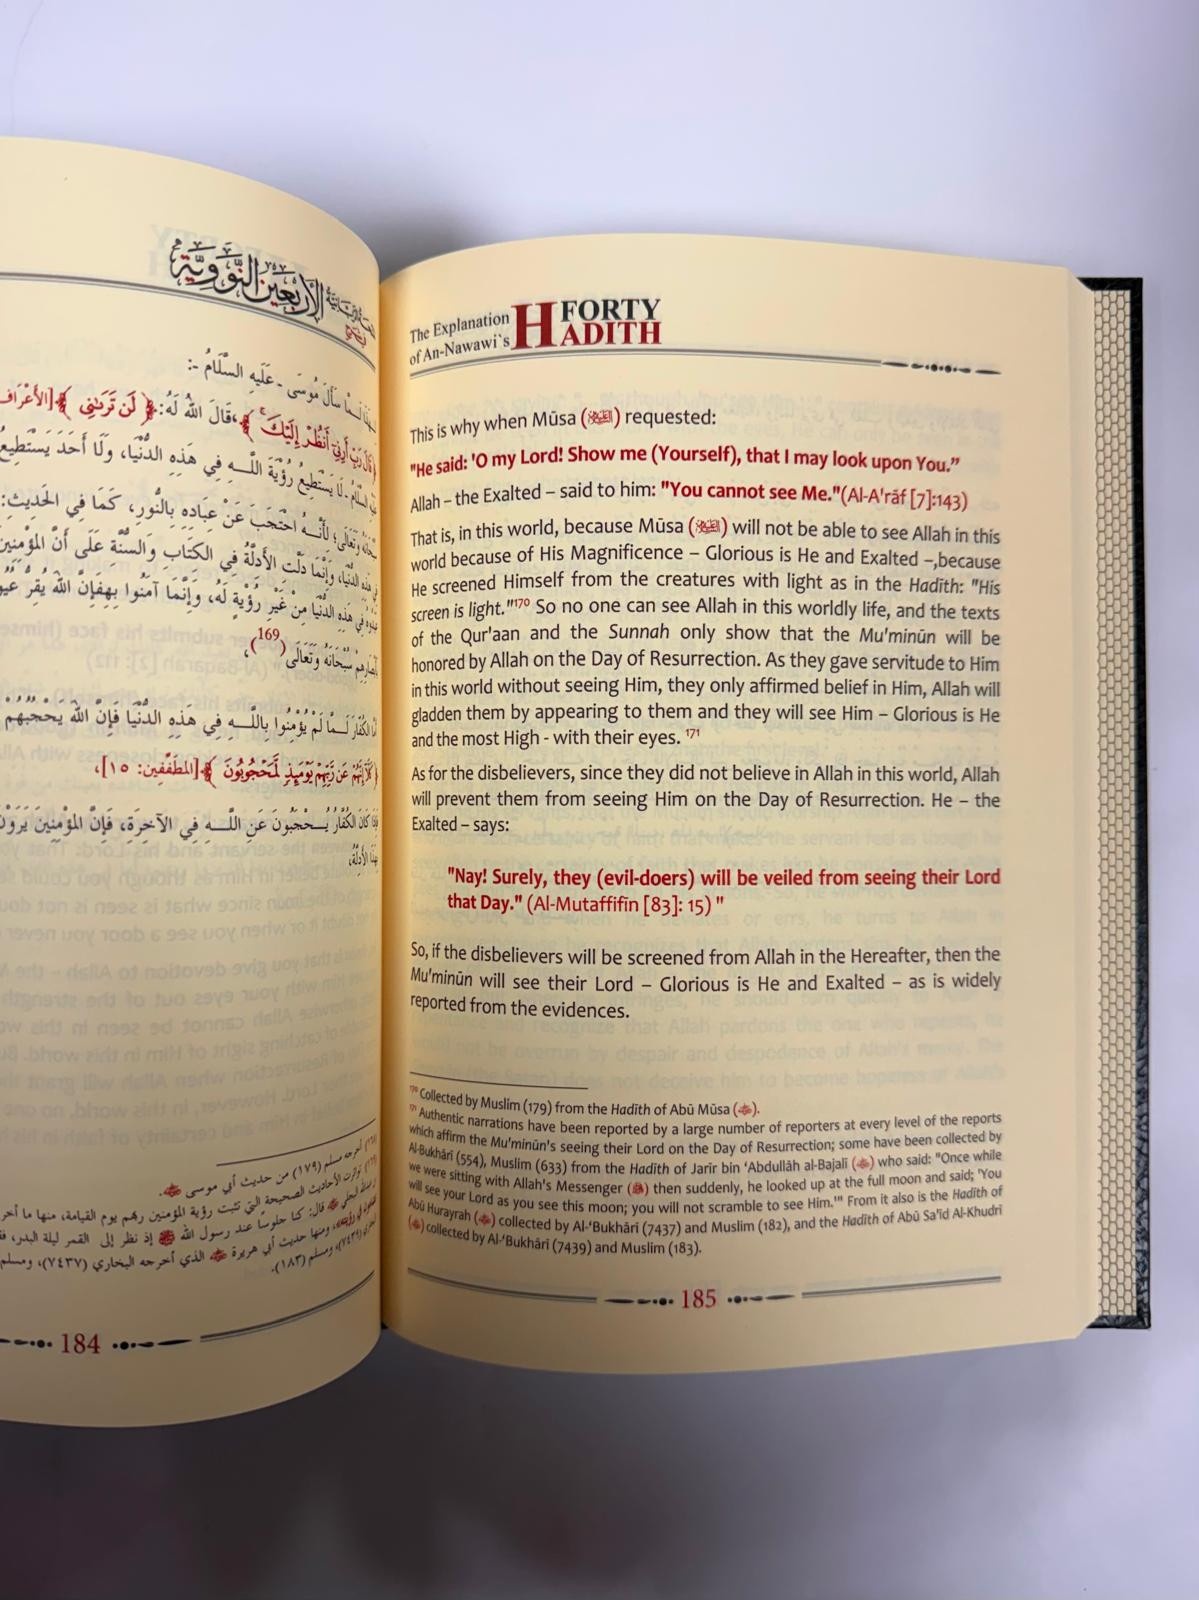 الأربعين النووية
سَأَلَ مُوسَى - عَلَيهِ السَّلَامُ -:
﴿قَالَ رَبِّ أَرِنِي أَنظُرْ إِلَيْكَ﴾، قَالَ اللهُ لَهُ: ﴿لَن تَرَىٰنِي﴾ [الأَعْرَاف
السَّلَامُ - لَا يَسْتَطِيعُ رُؤْيَةَ اللَّـهِ فِي هَذِهِ الدُّنْيَا، وَلَا أَحَدَ يَسْتَطِيعُ
وَتَعَالَى؛ لِأَنَّـهُ احْتَجَبَ عَنْ عِبَادِهِ بِالنُّورِ، كَمَا فِي الحَدِيثِ:
هَذِهِ الدُّنْيَا، وَإِنَّمَا دَلَّت الأَدِلَّةُ فِي الكِتَابِ وَالسُّنَّةِ عَلَى أَنَّ المُؤْمِنِينَ
فِي هَذِهِ الدُّنْيَا مِنْ غَيْرِ رُؤْيَةٍ لَهُ، وَإِنَّمَا آمَنُوا بِهِ فَإِنَّ اللهَ يُقِرُّ
سُبْحَانَهُ وَتَعَالَى(169)،
الكُفَّارُ لَـمَّا لَمْ يُؤْمِنُوا بِاللَّـهِ فِي هَذِهِ الدُّنْيَا فَإِنَّ اللهَ يَحْجُبُهُمْ
﴿كَلَّا إِنَّهُمْ عَن رَّبِّهِمْ يَوْمَئِذٍ لَّمَحْجُوبُونَ﴾ [المُطَفِّفِين: ١٥]،
كَانَ الكُفَّارُ يُـحْجَبُونَ عَنِ اللَّـهِ فِي الآخِرَةِ، فَإِنَّ المُؤْمِنِينَ يَرَوْنَ
الأَدِلَّةُ،
أخرجه مسلم (١٧٩) من حديث أبي موسى
تواترت الأحاديث الصحيحة التي تثبت رؤية المؤمنين ربهم يوم القيامة، منها ما
البجلي قال: كنا جلوسا عند رسول الله ﷺ إذ نظر إلى القمر ليلة البدر،
ومنها حديث أبي هريرة الذي أخرجه البخاري (٧٤٣٧)،
(٧٤٣٩)، ومسلم (١٨٣).
184
The Explanation
of An-Nawawi`s
FORTY
HADITH
This is why when Mūsa (عليه السلام) requested:
"He said: 'O my Lord! Show me (Yourself), that I may look upon You.”
Allah – the Exalted – said to him: "You cannot see Me."(Al-A'rāf [7]:143)
That is, in this world, because Mūsa (عليه السلام) will not be able to see Allah in this
world because of His Magnificence – Glorious is He and Exalted –,because
He screened Himself from the creatures with light as in the Hadīth: "His
screen is light."170 So no one can see Allah in this worldly life, and the texts
of the Qur'aan and the Sunnah only show that the Mu'minūn will be
honored by Allah on the Day of Resurrection. As they gave servitude to Him
in this world without seeing Him, they only affirmed belief in Him, Allah will
gladden them by appearing to them and they will see Him – Glorious is He
and the most High - with their eyes. 171
As for the disbelievers, since they did not believe in Allah in this world, Allah
will prevent them from seeing Him on the Day of Resurrection. He – the
Exalted – says:
"Nay! Surely, they (evil-doers) will be veiled from seeing their Lord
that Day." (Al-Mutaffifīn [83]: 15) "
So, if the disbelievers will be screened from Allah in the Hereafter, then the
Mu'minūn will see their Lord – Glorious is He and Exalted – as is widely
reported from the evidences.
170 Collected by Muslim (179) from the Hadīth of Abū Mūsa (رضي الله عنه).
171 Authentic narrations have been reported by a large number of reporters at every level of the reports
which affirm the Mu'minūn's seeing their Lord on the Day of Resurrection; some have been collected by
Al-Bukhārī (554), Muslim (633) from the Hadīth of Jarīr bin ‘Abdullāh al-Bajalī (رضي الله عنه) who said: "Once while
we were sitting with Allah's Messenger (ﷺ) then suddenly, he looked up at the full moon and said; 'You
will see your Lord as you see this moon; you will not scramble to see Him.'" From it also is the Hadīth of
Abū Hurayrah (رضي الله عنه) collected by Al-‘Bukhārī (7437) and Muslim (182), and the Hadīth of Abū Sa'īd Al-Khudrī
(رضي الله عنه) collected by Al-‘Bukhārī (7439) and Muslim (183).
185